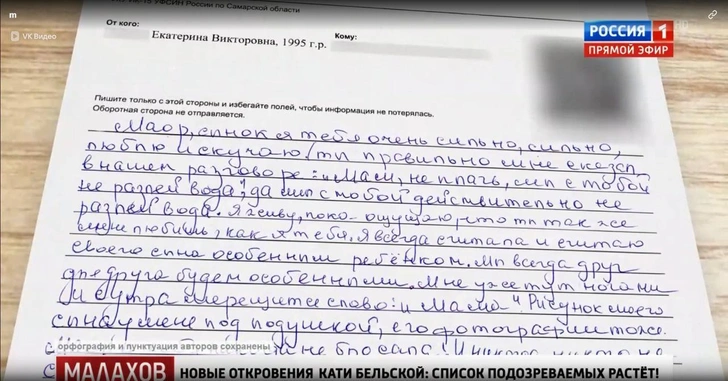 m
VK Видео
УФСИН России по Самарской области
РОССИЯ 1
ПРЯМОЙ ЭФИР
От кого:
Екатерина Викторовна, 1995 г.р.
Кому:
Пишите только с этой стороны и избегайте полей, чтобы информация не потерялась.
Оборотная сторона не отправляется.
сынок я тебя очень сильно, сильно,
люблю и скучаю! ты правильно мне сказал
в нашем разговоре: "Мам, не плачь, мы с тобой
не разлей вода", да мы с тобой действительно не
разлей вода. Я живу, пока ощущаю, что ты так же
меня любишь, как я тебя. Я всегда считала и считаю
своего сына особенным ребёнком. Мы всегда друг
для друга будем особенными. Мне уже тут ночами
и с утра мерещится слово: "Мама". Рисунок моего
сына у меня под подушкой, его фотографии тоже.
не бросала
орфография и пунктуация авторов сохранены
МАЛАХОВ
НОВЫЕ ОТКРОВЕНИЯ КАТИ БЕЛЬСКОЙ: СПИСОК ПОДОЗРЕВАЕМЫХ РАСТЁТ!